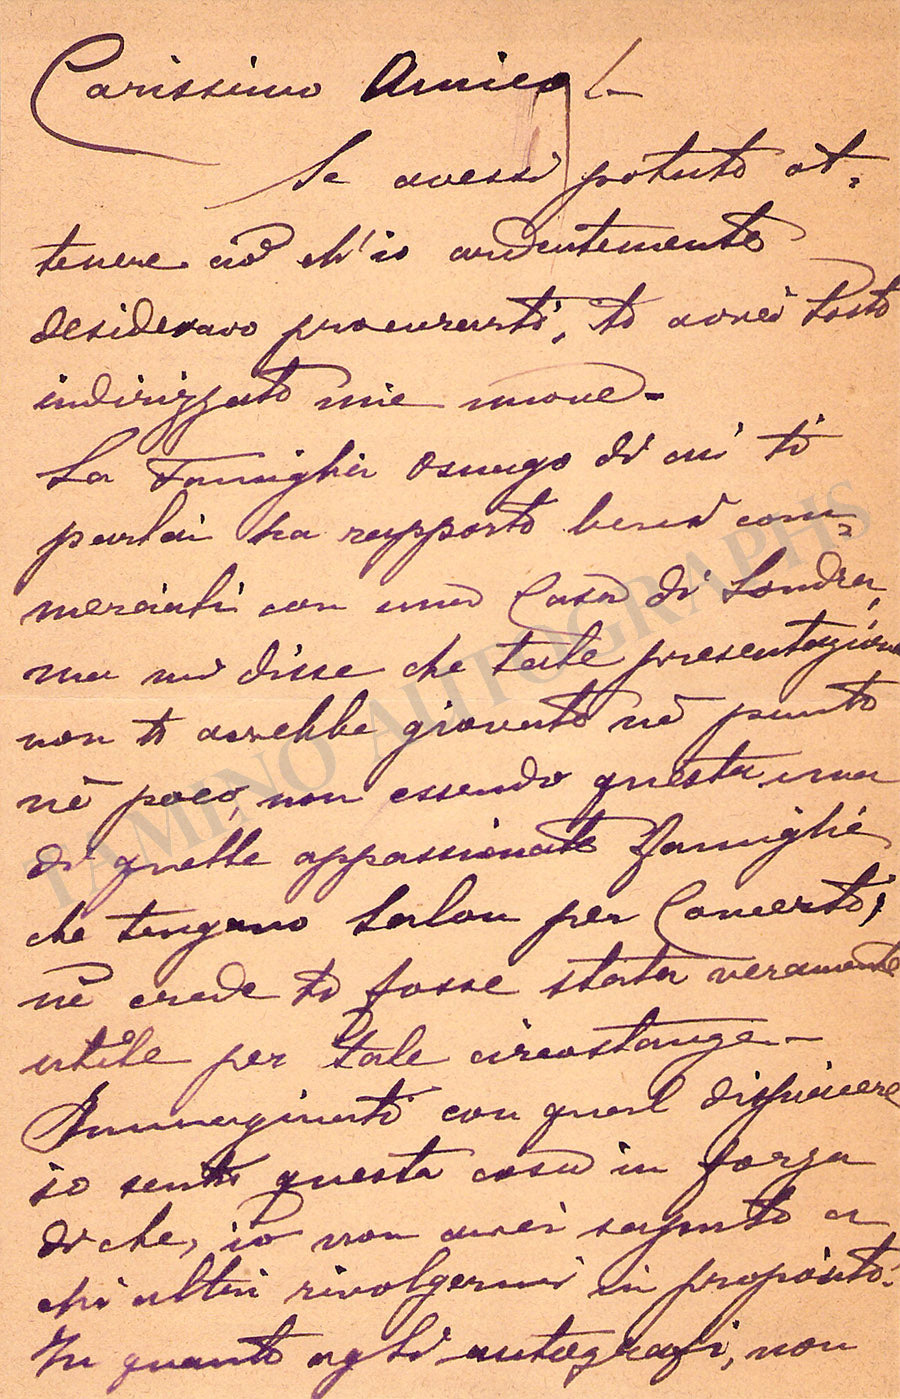 Carissimo Amico!—
Se avessi potuto ot-
tenere ciò ch'io ardentemente
desideravo procurarti, ti avrei tosto
indirizzato mie nuove-
La Famiglia Osnago di cui ti
parlai ha rapporto bensì com-
merciali con una Casa di Londra,
ma mi disse che tale presentazione
non ti avrebbe giovato nè punto
nè poco, non essendo questa una
di quelle appassionate famiglie
che tengano Salon per Concerti;
nè crede ti fosse stata veramente
utile per tale circostanza.—
Immaginati con qual dispiacere
io sento questa cosa in forza
di che, io non avrei saputo a
chi altri rivolgermi in proposito.
In quanto agli autografi, non
TAMINO AUTOGRAPHS